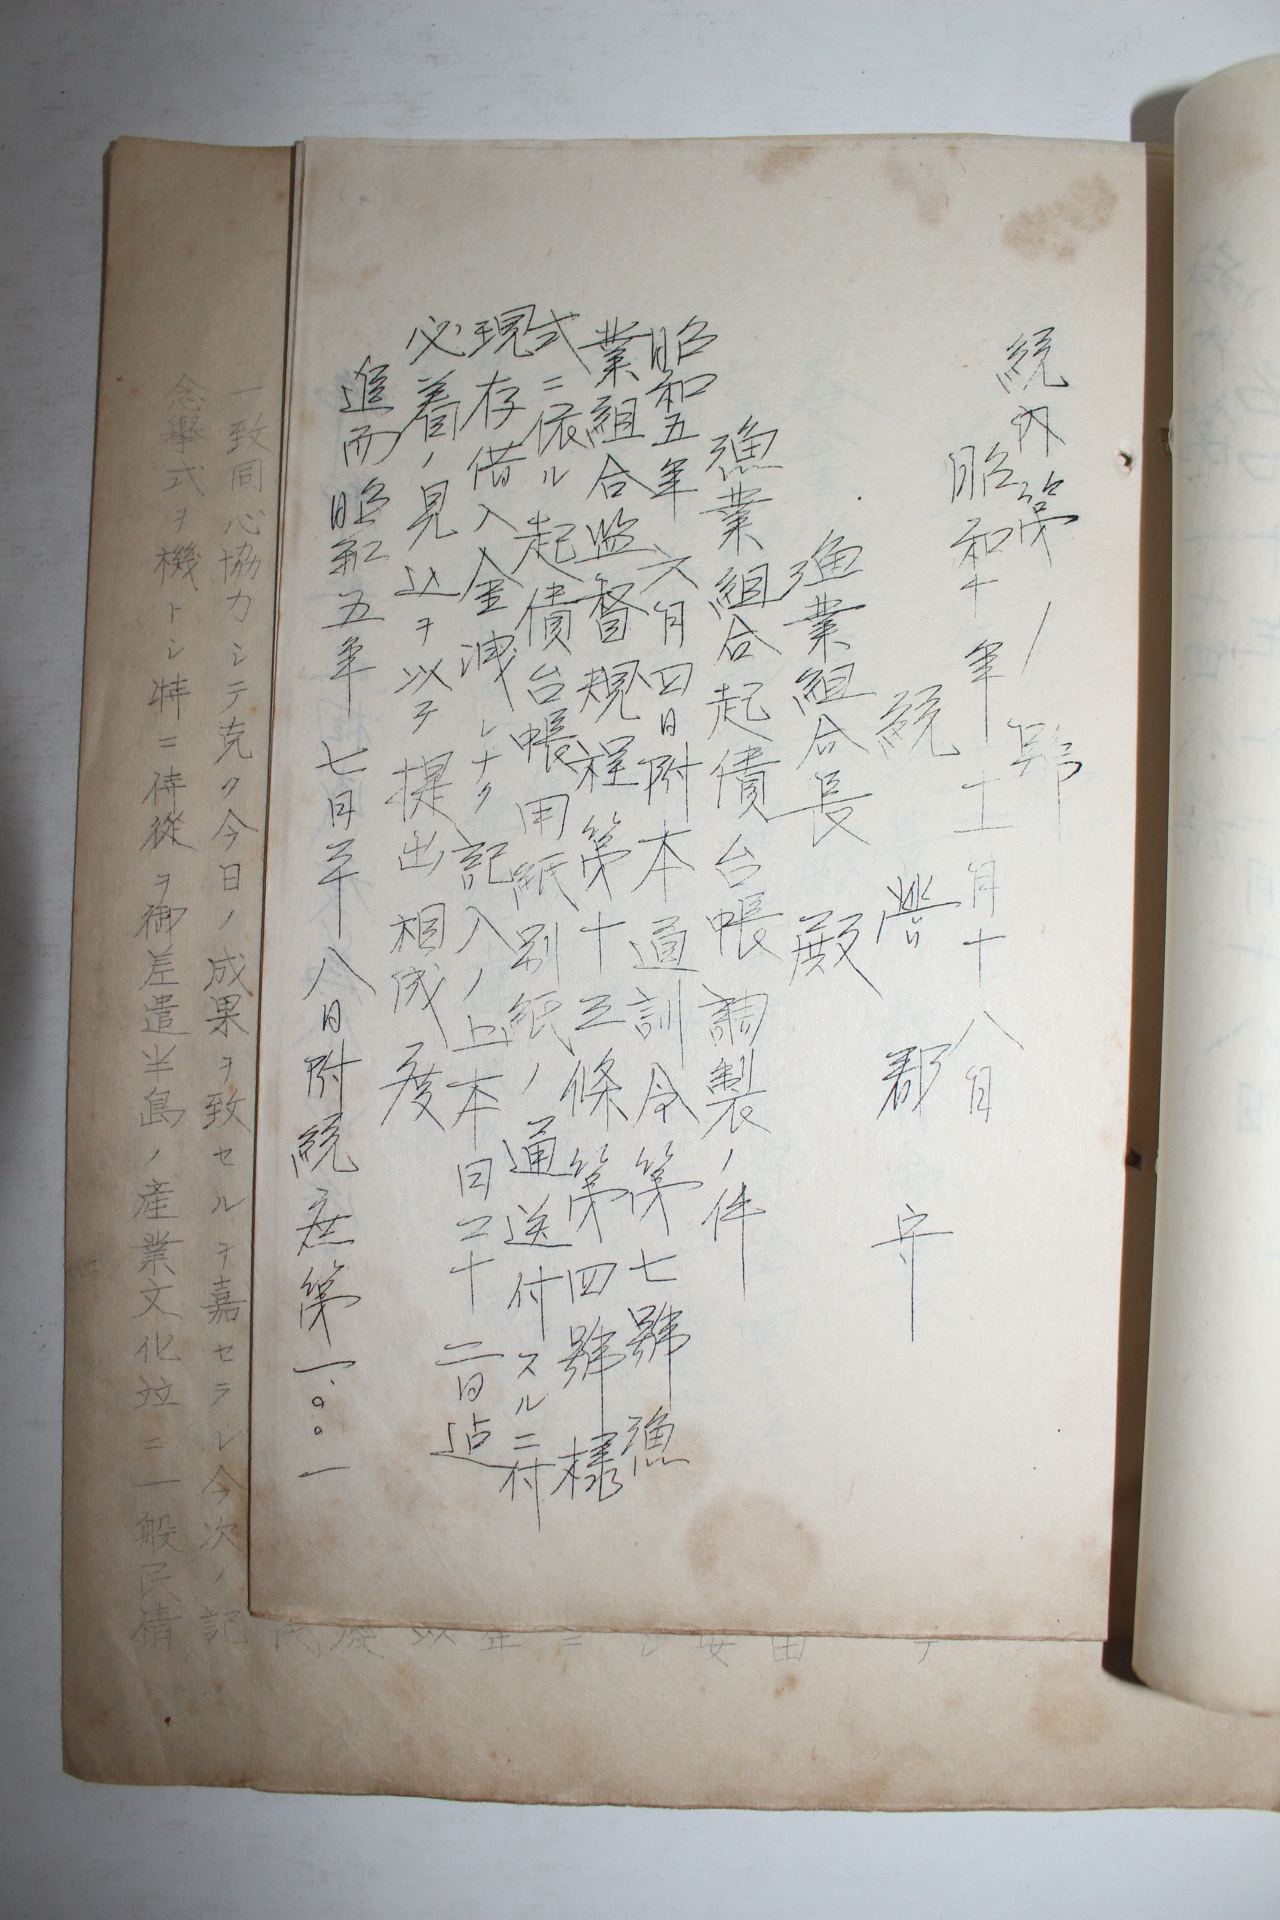 統内第 / 號
昭和十年十一月十八日
統營郡守
漁業組合長殿
漁業組合起債台帳調製ノ件
昭和五年六月四日附本道訓令第七號漁
業組合監督規程第十三條第四號樣
式ニ依ル起債台帳用紙別紙ノ通送付スルニ付
現存借入金洩レナク記入ノ上本月二十二日迄
必着ノ見込ヲ以テ提出相成度
追而昭和五年七月二十八日附統庶第一〇〇一
一致同心協力シテ克ク今日ノ成果ヲ致セルヲ嘉セラレ今次ノ記
念擧式ヲ機トシ特ニ侍從ヲ御差遣半島ノ產業文化竝ニ一般民情